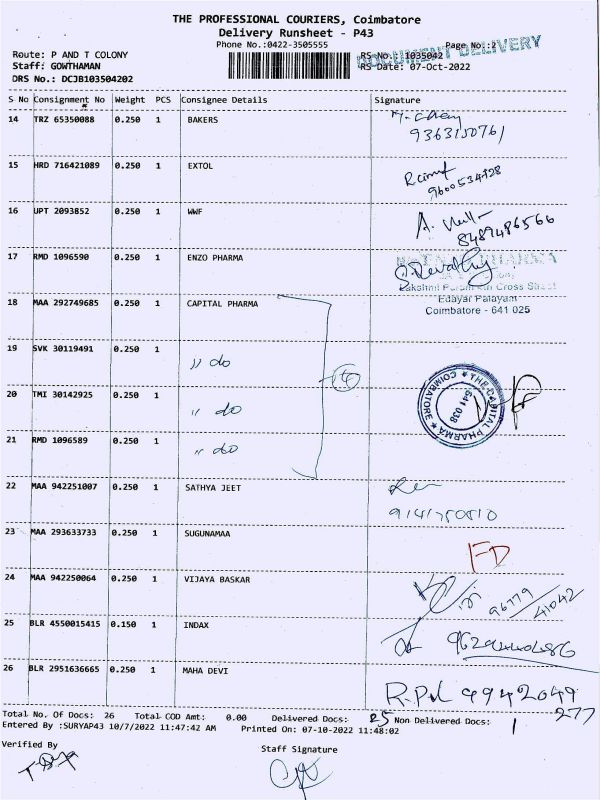 THE PROFESSIONAL COURIERS, Coimbatore
Delivery Runsheet - P43
Phone No.:0422-3505555
Page No.:2
DOCUMENT DELIVERY
Route: P AND T COLONY
RS No.: 1035042
Staff: GOWTHAMAN
RS Date: 07-Oct-2022
DRS No.: DCJB103504202
S No Consignment No Weight PCS Consignee Details Signature
14 TRZ 65350088 0.250 1 BAKERS
9363150761
15 HRD 716421089 0.250 1 EXTOL
9600534928
16 UPT 2093852 0.250 1 WWF
8489486566
17 RMD 1096590 0.250 1 ENZO PHARMA
PHARMA
Lakshmi Puram 4th Cross Street
Edayar Palayam
Coimbatore - 641 025
18 MAA 292749685 0.250 1 CAPITAL PHARMA
19 SVK 30119491 0.250 1
" do
20 TMI 30142925 0.250 1
" do
THE CAPITAL PHARMA
COIMBATORE
641 038
21 RMD 1096589 0.250 1
" do
22 MAA 942251007 0.250 1 SATHYA JEET
23 MAA 293633733 0.250 1 SUGUNAMAA
FD
24 MAA 942250064 0.250 1 VIJAYA BASKAR
96779
41042
25 BLR 4550015415 0.150 1 INDAX
26 BLR 2951636665 0.250 1 MAHA DEVI
9942049
277
Total No. Of Docs: 26 Total COD Amt: 0.00 Delivered Docs: 25 Non Delivered Docs: 1
Entered By :SURYAP43 10/7/2022 11:47:42 AM Printed On: 07-10-2022 11:48:02
Verified By
Staff Signature